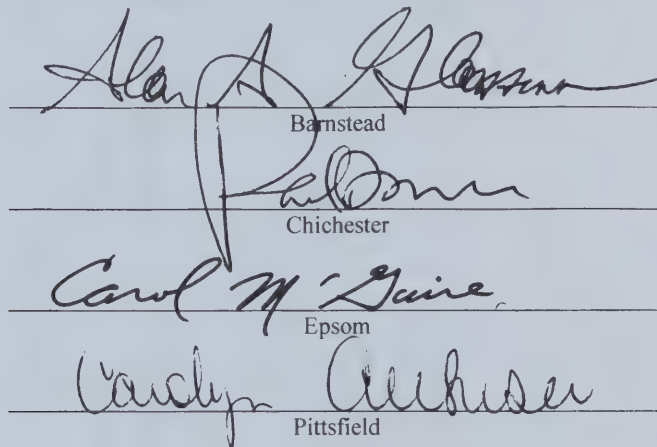 Alan A. Glassman
Barnstead
Chichester
Carol M'Guire
Epsom
Carolyn
Pittsfield